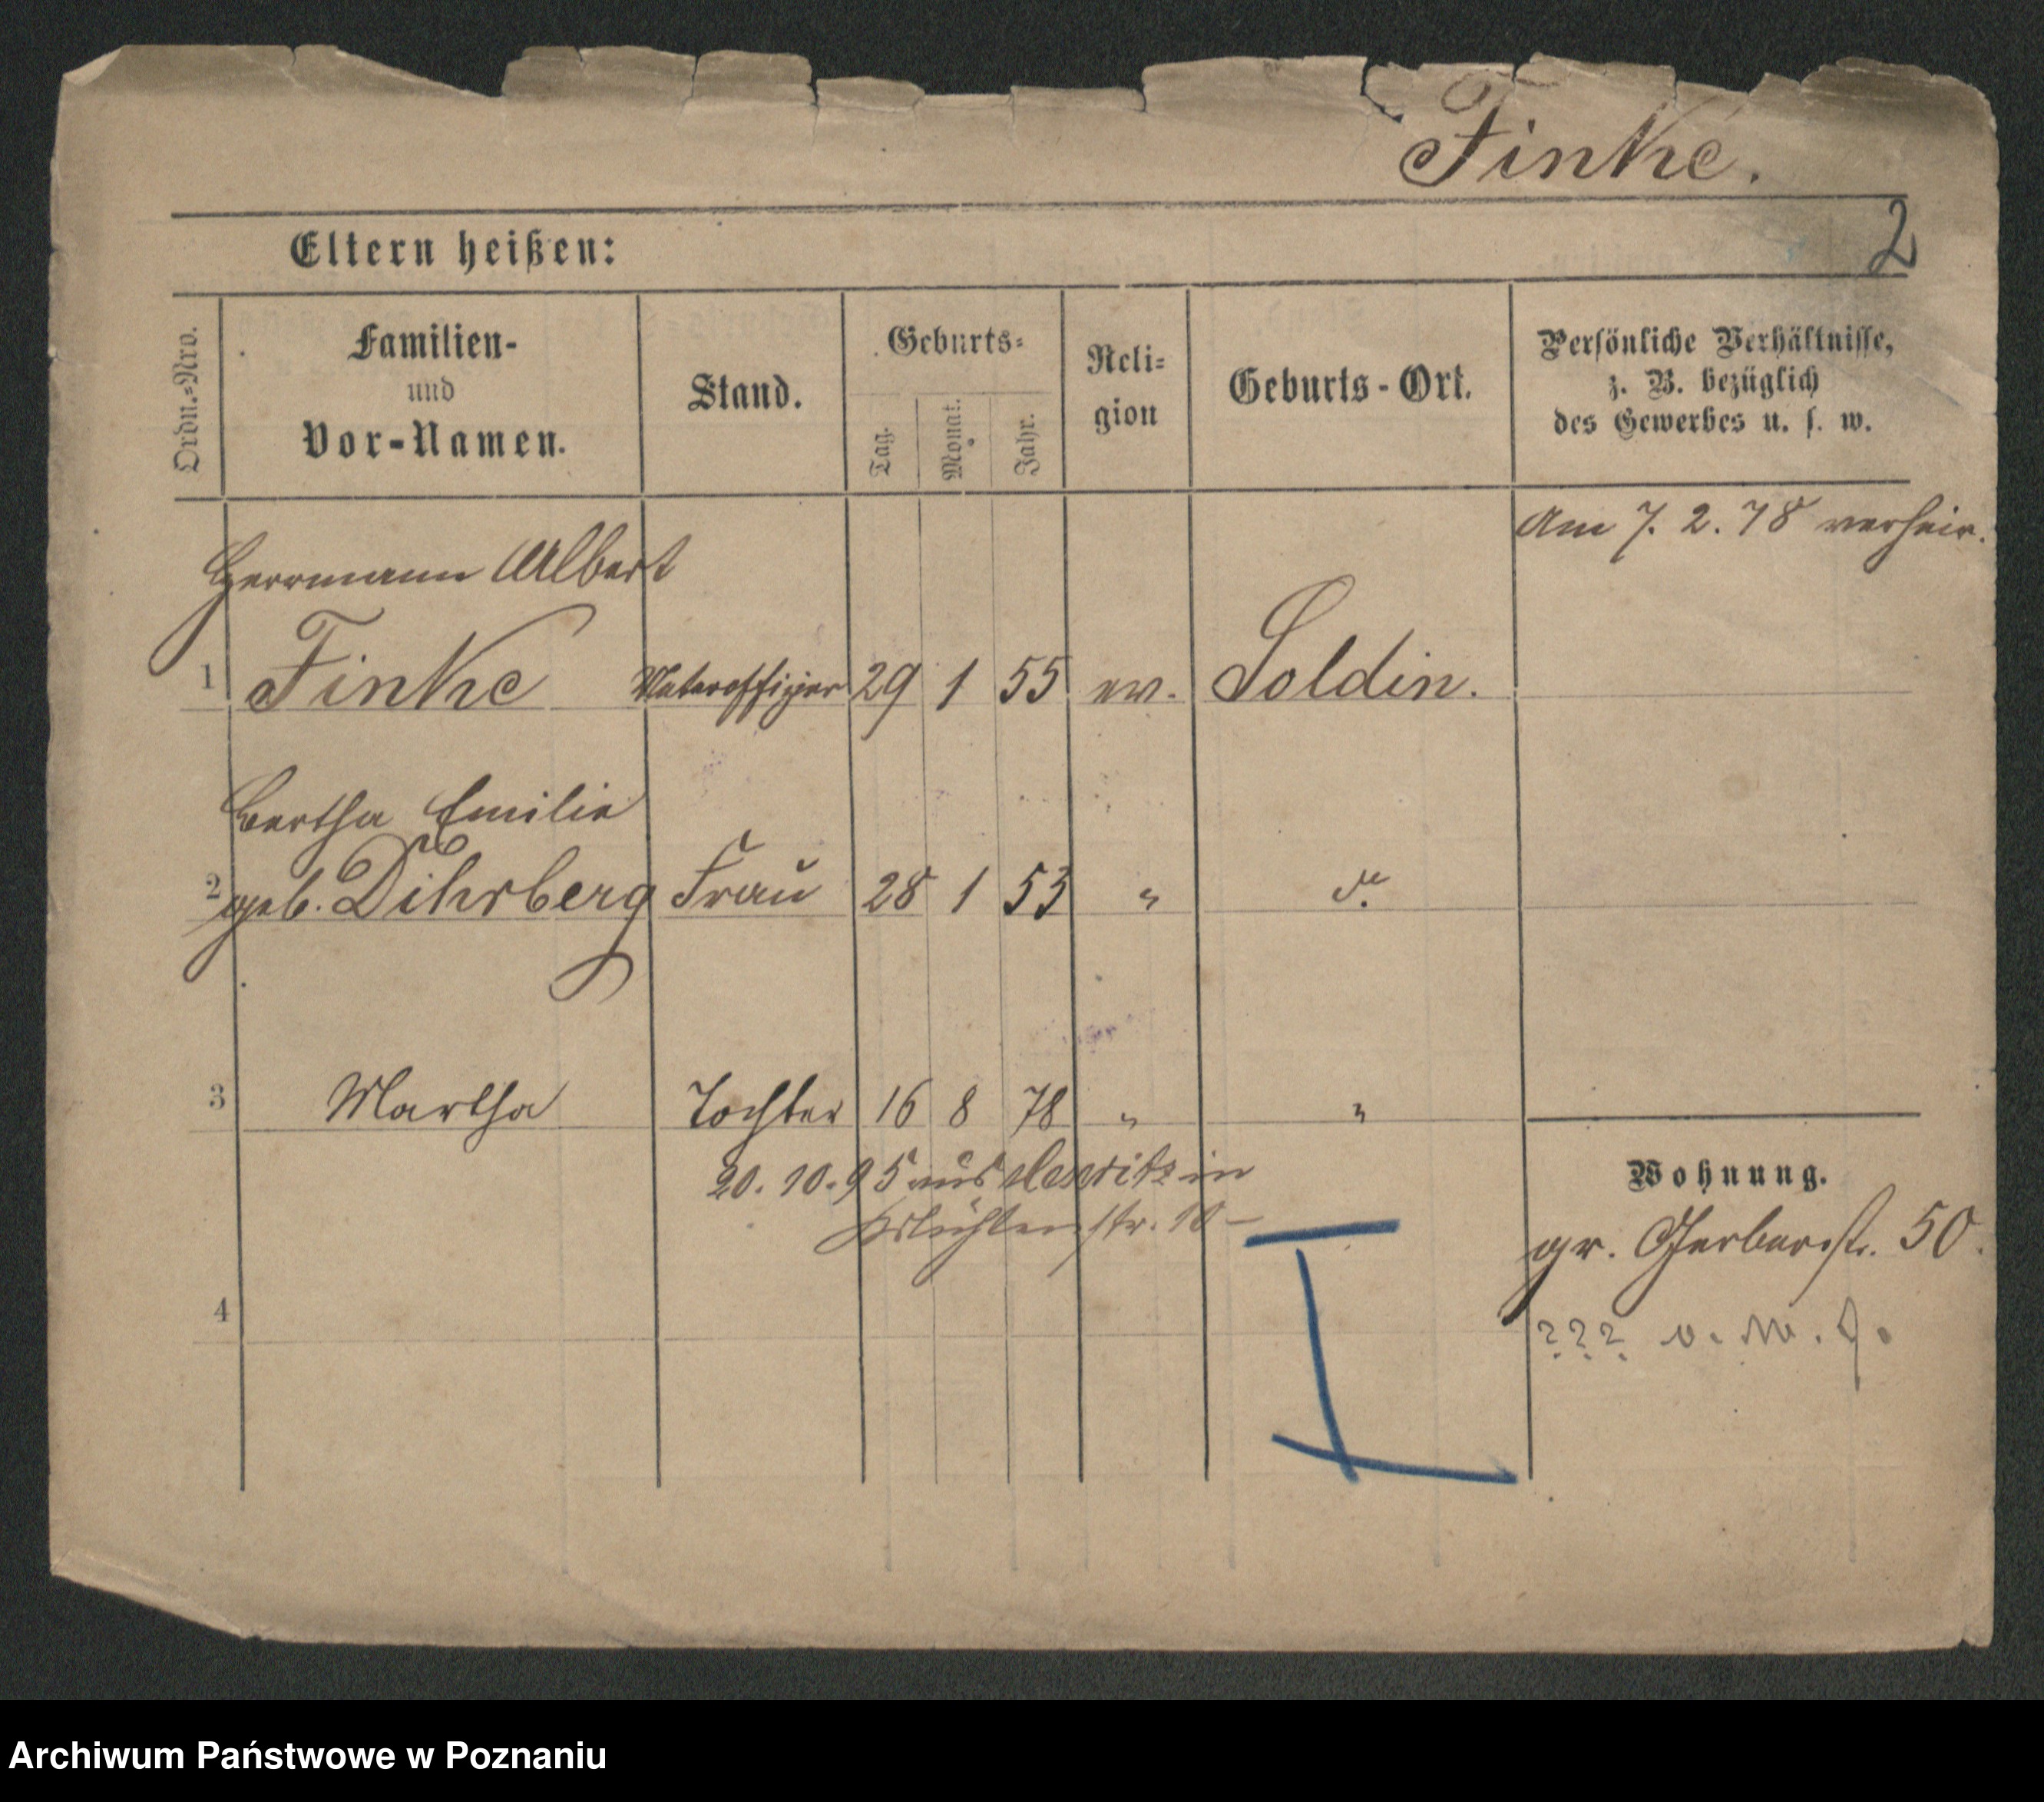 Finke.
2
Eltern heißen:
Ordn.-Nro.
Familien-
und
Vor-Namen.
Stand.
Geburts-
Tag.
Monat.
Jahr.
Reli-
gion
Geburts-Ort.
Persönliche Verhältnisse,
z. B. bezüglich
des Gewerbes u. s. w.
Am 7. 2. 78 verheir.
Herrmann Albert
1 Finke Unteroffizier 29 1 55 ev. Soldin.
Bertha Emilie
2 geb. Dihrberg Frau 28 1 53 " do.
3 Martha Tochter 16 8 78 " "
20. 10. 95 aus in
str. 10
Wohnung.
gr. Gerberstr. 50.
4
??? v. M. J.
I
Archiwum Państwowe w Poznaniu